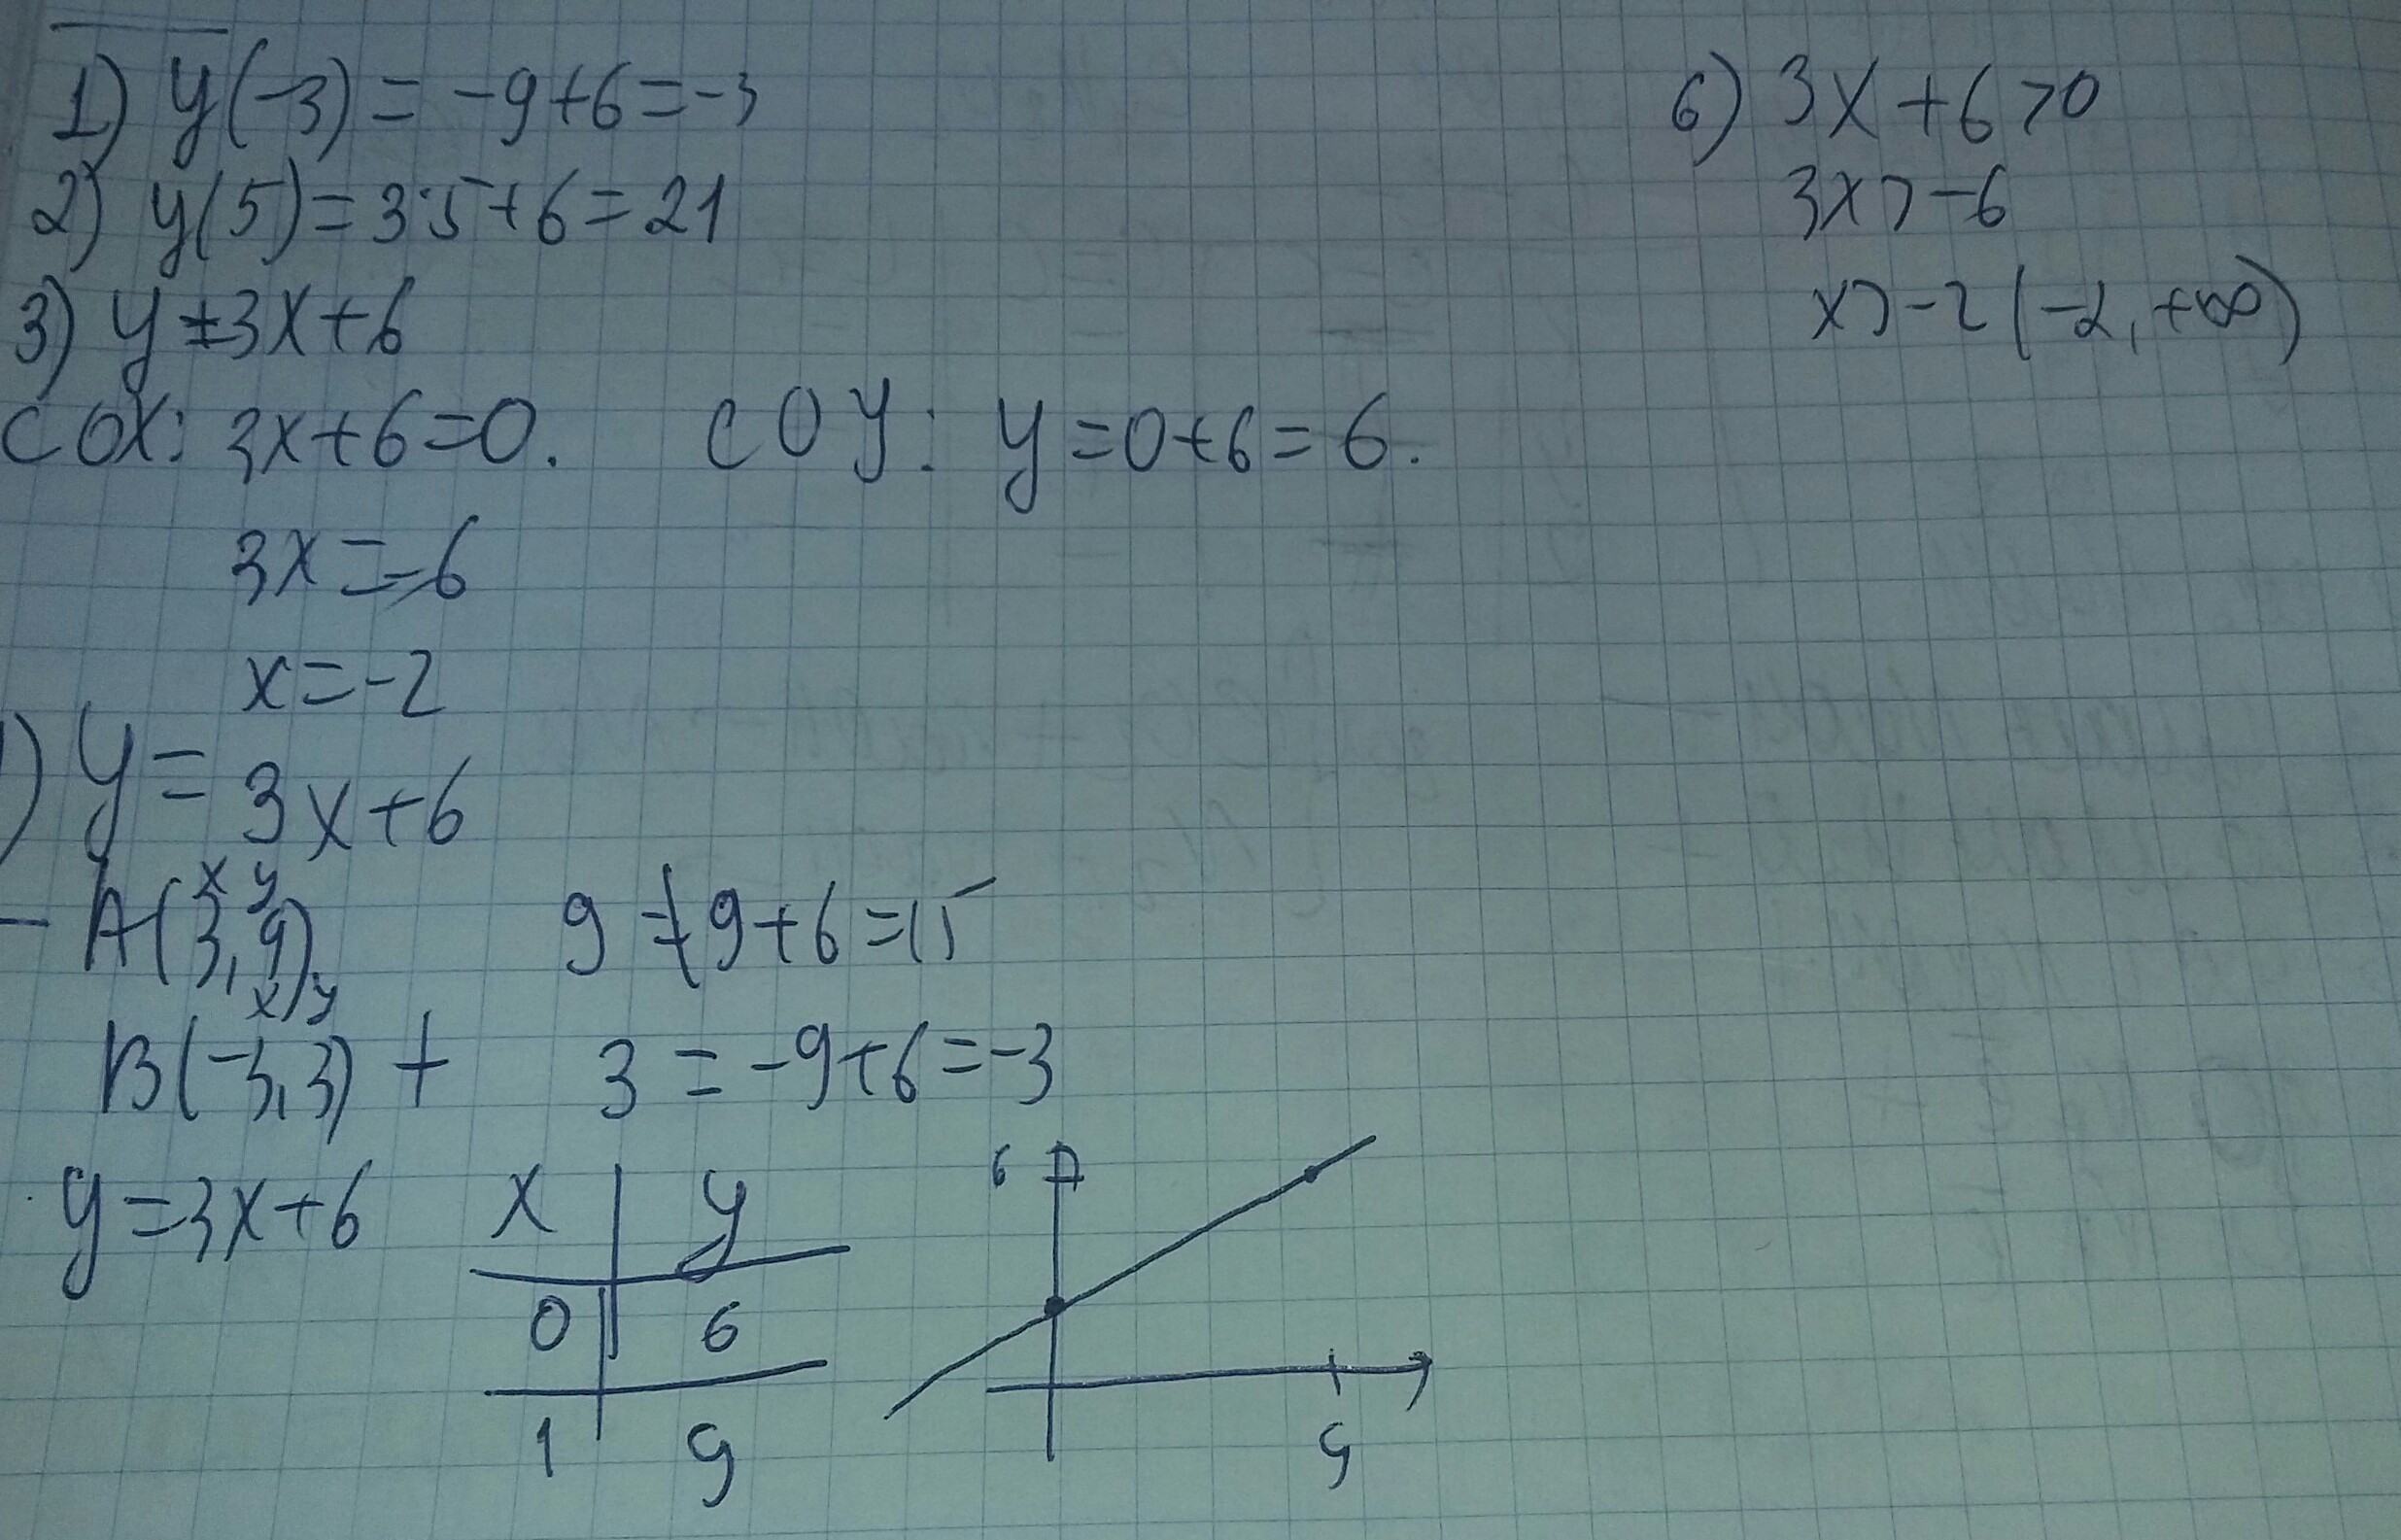 1) y(-3) = -9+6=-3
2) y(5)=3·5+6=21
3) y=3x+6
С ОХ: 3x+6=0. С ОУ: y=0+6=6.
3x=-6
x=-2
) y=3x+6
- A(3,9). 9≠9+6=15
x y
x y
B(-3,3) + 3=-9+6=-3
y=3x+6
x y
0 6
1 9
6
9
6) 3x+6>0
3x>-6
x>-2 (-2,+∞)